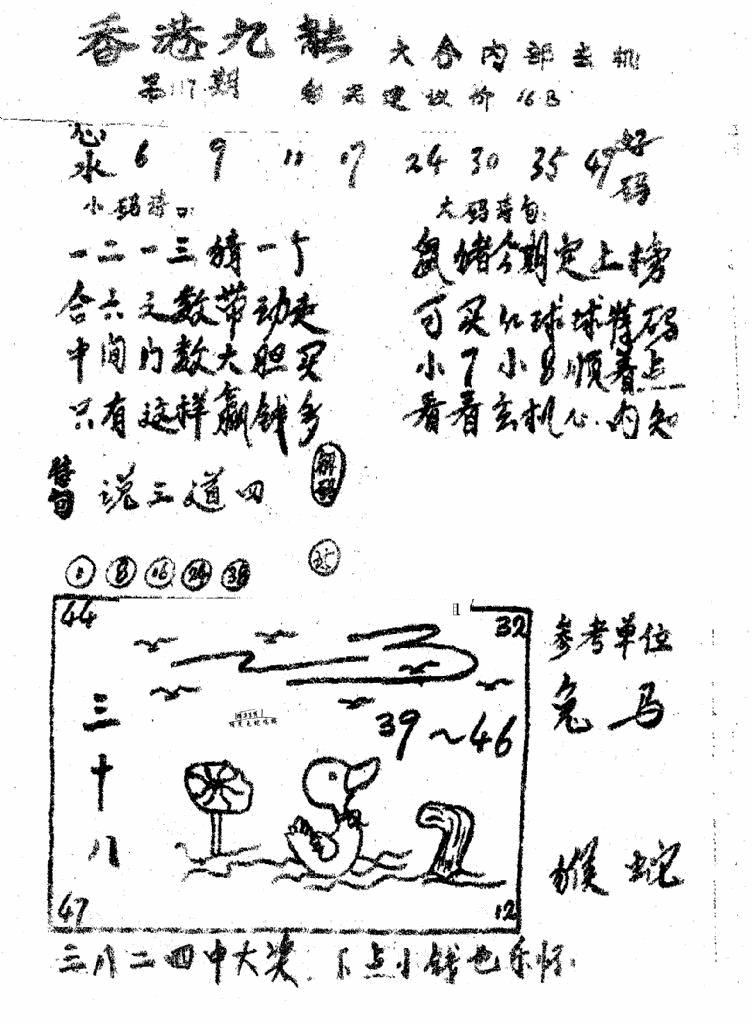 香港九龍 六合内部玄机
第117期
心水 6 9 11 17 24 30 35 49 好码
小码诗
一二一三猜一个
合六之数带动走
中间门数大胆买
只有这样赢钱多
六码诗句
鼠猪今期定上榜
可买红球球特码
小7小8顺着点
看看玄机心内知
特句 说三道四
解码
44 32
三十八
39~46
47 12
参考单位
兔马
猴蛇
三八二四中大奖 下点小钱也乐怀